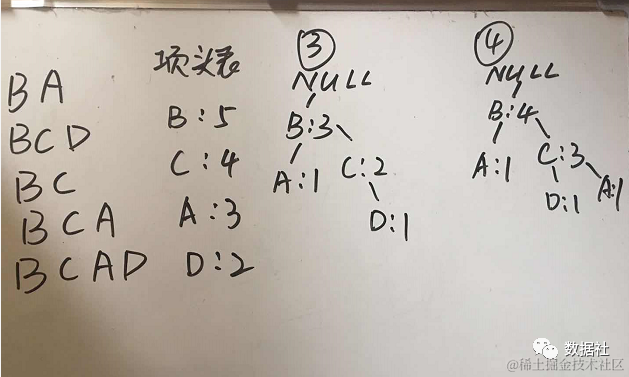 BA
BCD
BC
BCA
BCAD
项头表
B:5
C:4
A:3
D:2
③
NULL
B:3
A:1 C:2
D:1
④
NULL
B:4
A:1 C:3
D:1 A:1
数据社
@稀土掘金技术社区